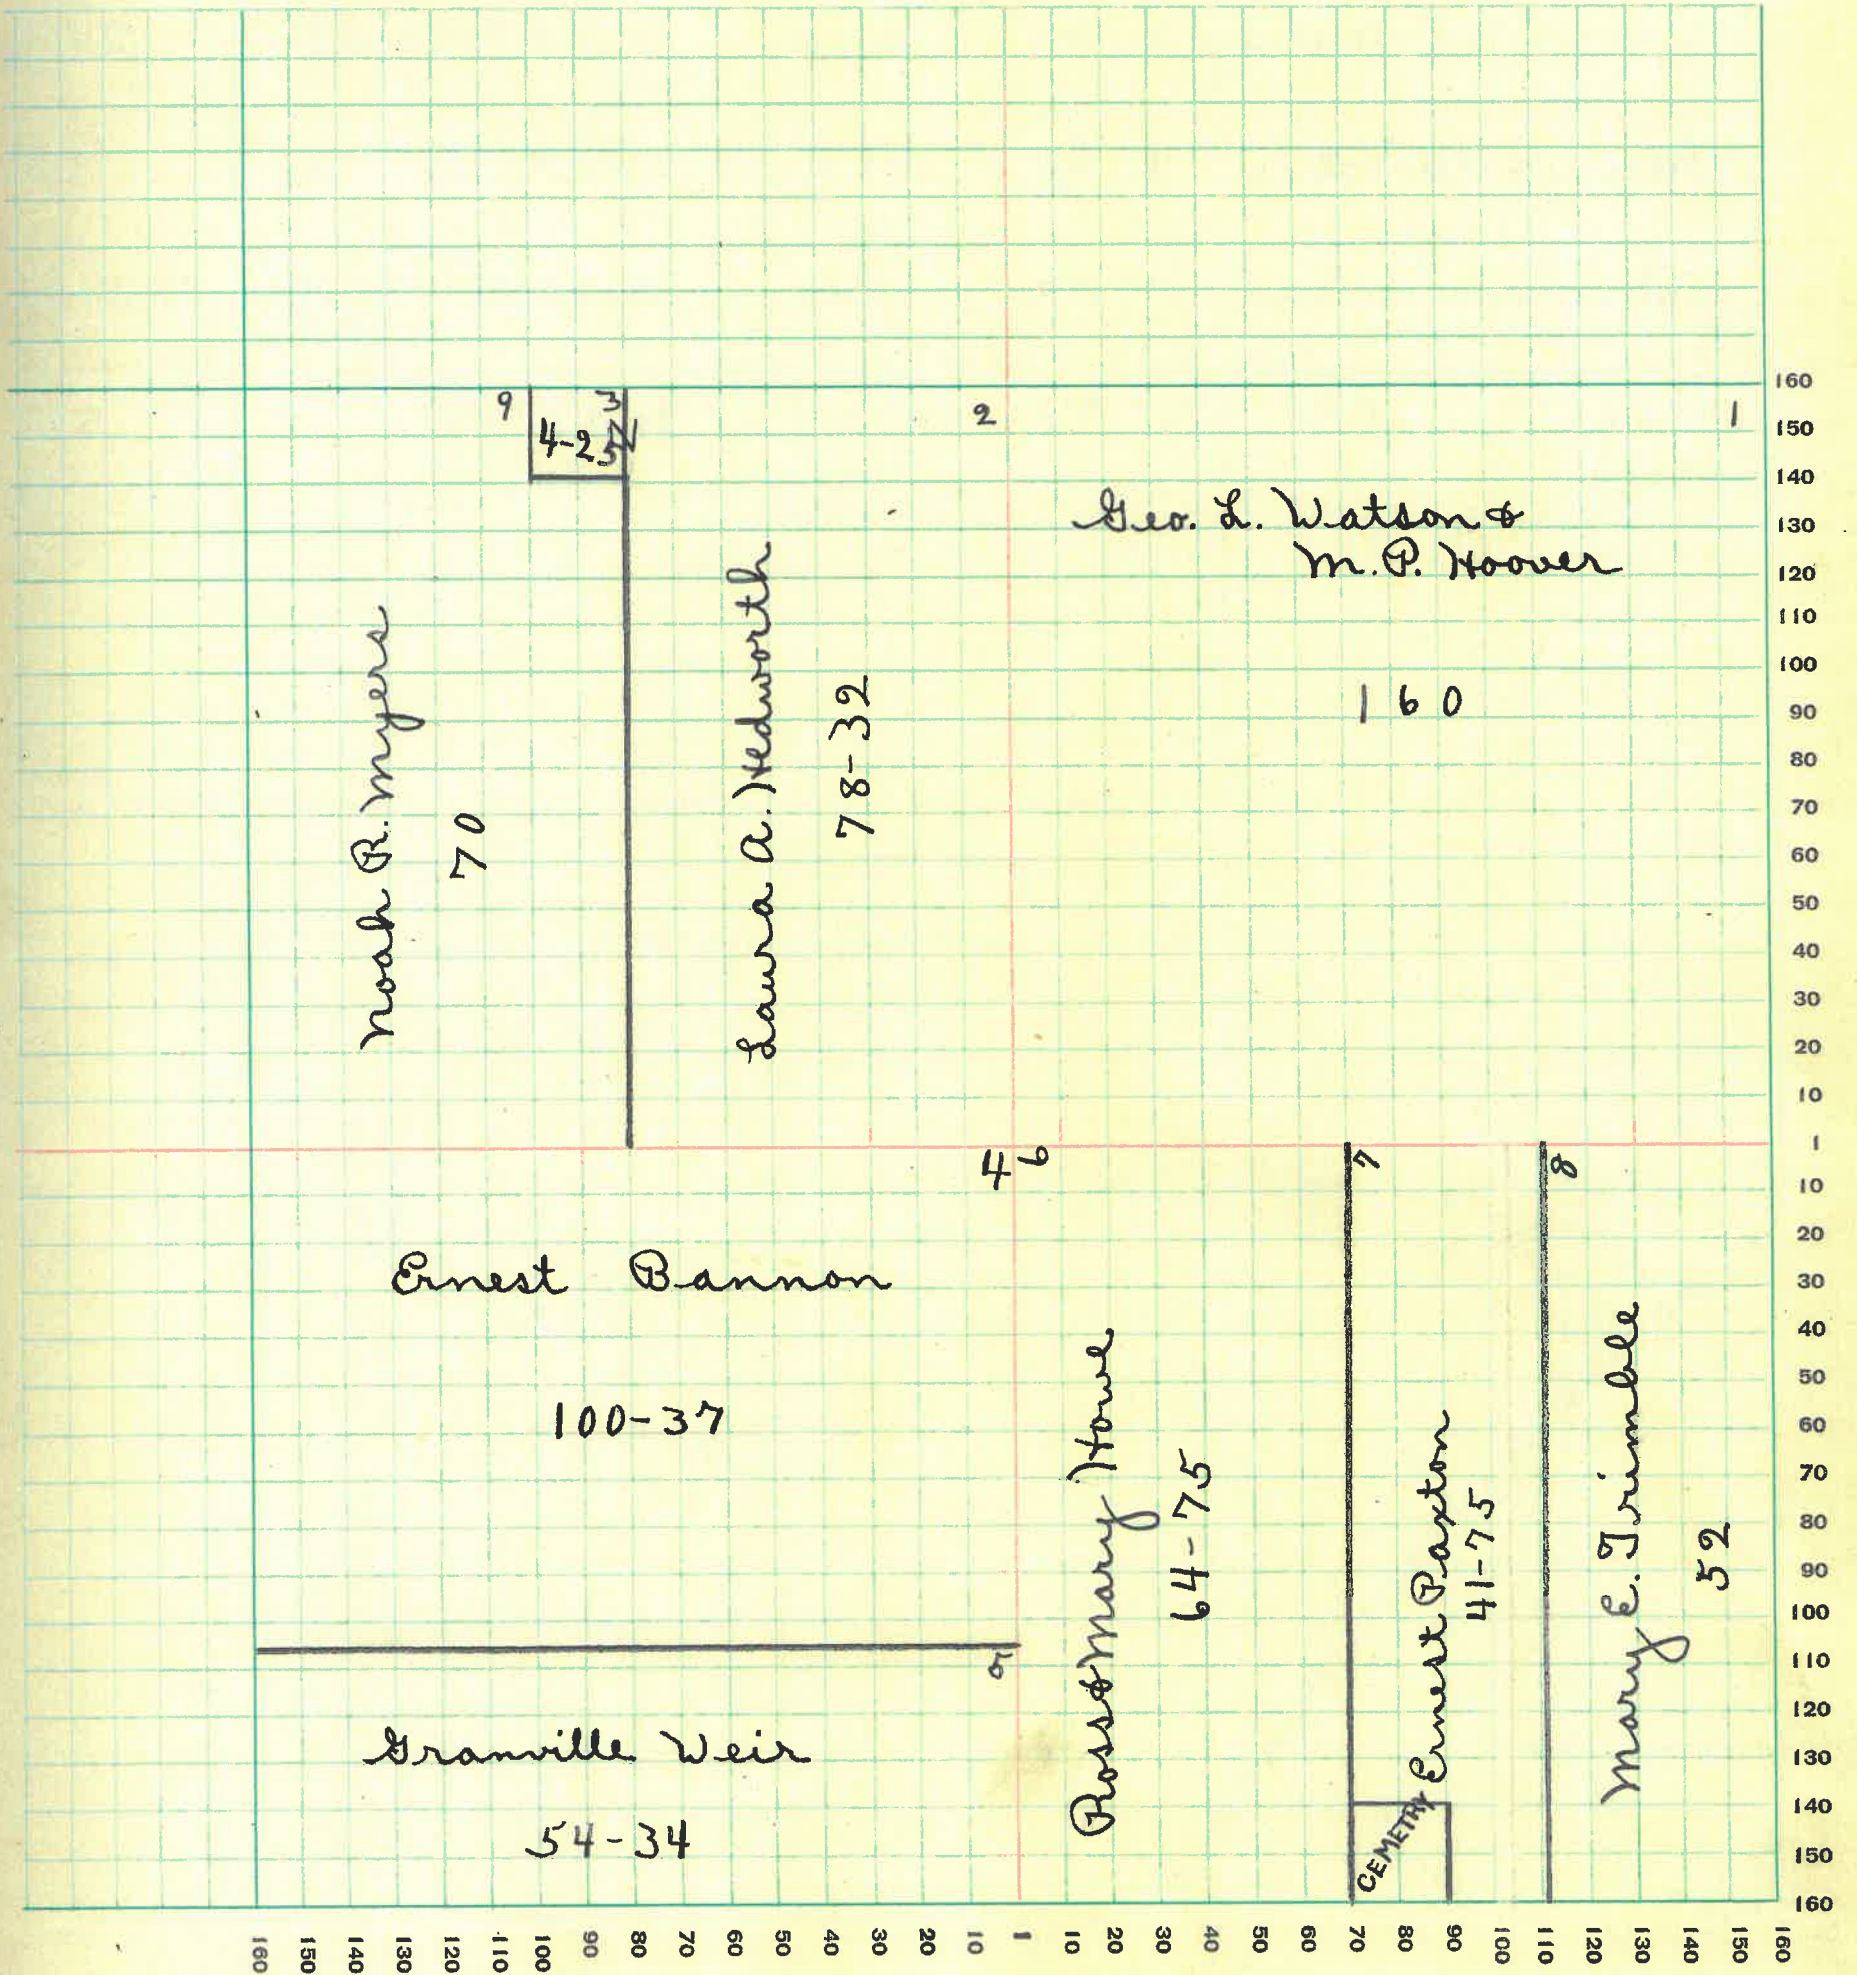 9
3
4-25
2
1
Geo. L. Watson &
M. P. Hoover
160
Noah R. Myers
70
Laura A. Hedworth
78-32
4
6
7
8
Ernest Bannon
100-37
Ross & Mary Howe
64-75
Ernest Paxton
41-75
Mary E. Trimble
52
Granville Weir
54-34
CEMETRY
160
150
140
130
120
110
100
90
80
70
60
50
40
30
20
10
1
10
20
30
40
50
60
70
80
90
100
110
120
130
140
150
160
160 150 140 130 120 110 100 90 80 70 60 50 40 30 20 10 1 10 20 30 40 50 60 70 80 90 100 110 120 130 140 150 160